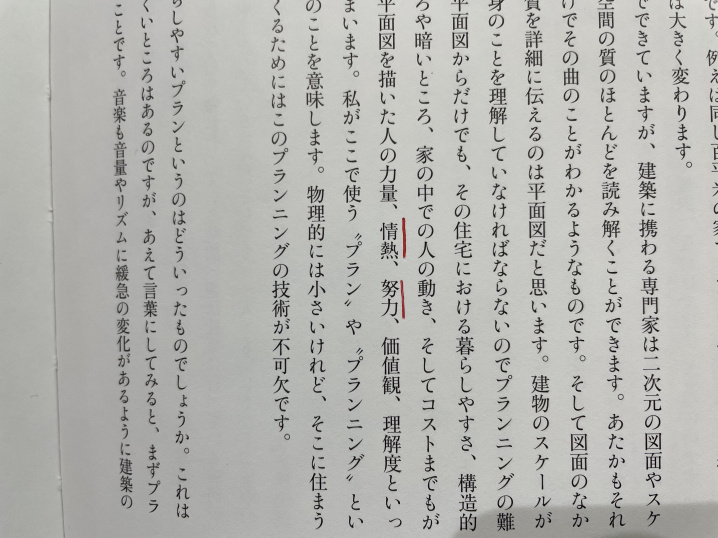 です。例えば同じ百平米の家
は大きく変わります。
でできていますが、建築に携わる専門家は二次元の図面やスケ
空間の質のほとんどを読み解くことができます。あたかもそれ
けでその曲のことがわかるようなものです。そして図面のなか
質を詳細に伝えるのは平面図だと思います。建物のスケールが
身のことを理解していなければならないのでプランニングの難
平面図からだけでも、その住宅における暮らしやすさ、構造的
ろや暗いところ、家の中での人の動き、そしてコストまでもが
平面図を描いた人の力量、情熱、努力、価値観、理解度といっ
まいます。私がここで使う〝プラン〟や〝プランニング〟とい
のことを意味します。物理的には小さいけれど、そこに住まう
くるためにはこのプランニングの技術が不可欠です。
らしやすいプランというのはどういったものでしょうか。これは
くいところはあるのですが、あえて言葉にしてみると、まずプラ
ことです。音楽も音量やリズムに緩急の変化があるように建築の